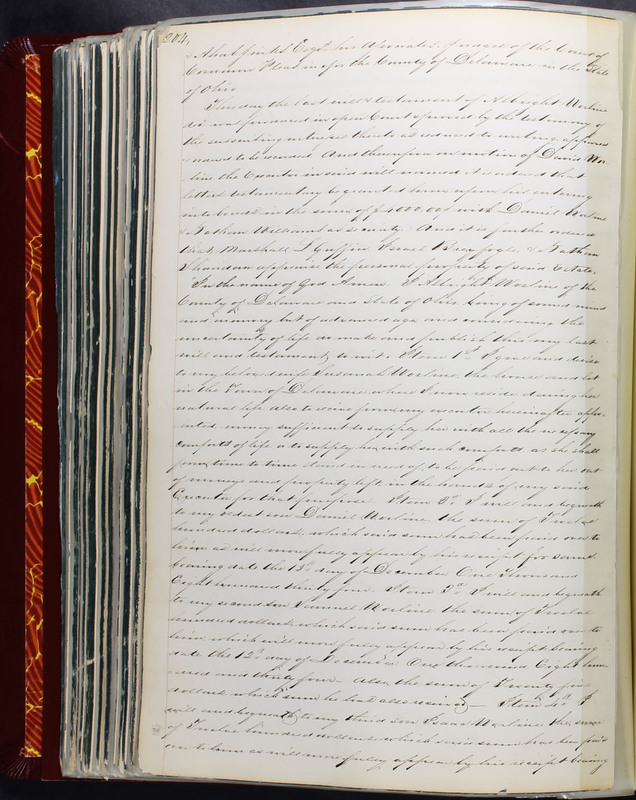 204,
Esqrs his Associates Judges of the Court of
Common Pleas in & for the County of Delaware in the State
of Ohio
This day the last will & testament of Albright Worline
decd was produced in open Court & proved by the testimony of
the subscribing witnesses thereto as reduced to writing, approved
& ordered to be recorded. And thereupon on motion of David Wor
line the Executor in said will named it is ordered that
letters testamentary be granted him upon his entering
into bonds in the sum of $4000.00, with Daniel Worline
& Nathan Williams as security. And it is further ordered
that, Marshall L Griffin Israel Breyfogle, & Nathan
appraise the personal property of said Estate.
In the name of God Amen. I Albright Worline of the
County of Delaware and State of Ohio being of sound mind
and memory but of advanced age and considering the
uncertainty of life do make and publish this my last
will and testament, to wit. Item 1st I give and devise
to my beloved wife Susannah Worline the house and lot
in the Town of Delaware where I now reside during her
natural life also to receive from my executor hereinafter appo-
inted, money sufficient to supply her with all the necessary
comforts of life & to supply her with such comforts as she shall
from time to time stand in need of to be paid out to her out
of moneys and property left in the hands of my said
Executor for that purpose. Item 2d I will and bequeath
to my oldest son Daniel Worline the sum of Twelve
hundred dollars, which said sum has been paid over to
him as will more fully appear by his receipt for same
bearing date the 13th day of December One Thousand
Eight hundred thirty four. Item 3d I will and bequeath
to my second son Samuel Worline the sum of Twelve
hundred dollars which said sum has been paid over to
him which will more fully appear by his receipt bearing
date the 12th day of December One thousand Eight hun-
dred and thirty four - Also, the sum of Twenty five
dollars which sum he has also received - Item 4th I
will and bequeath to my third son Isaac Worline the sum
of Twelve hundred dollars which said sum has been paid
over to him as will more fully appear by his receipt bearing